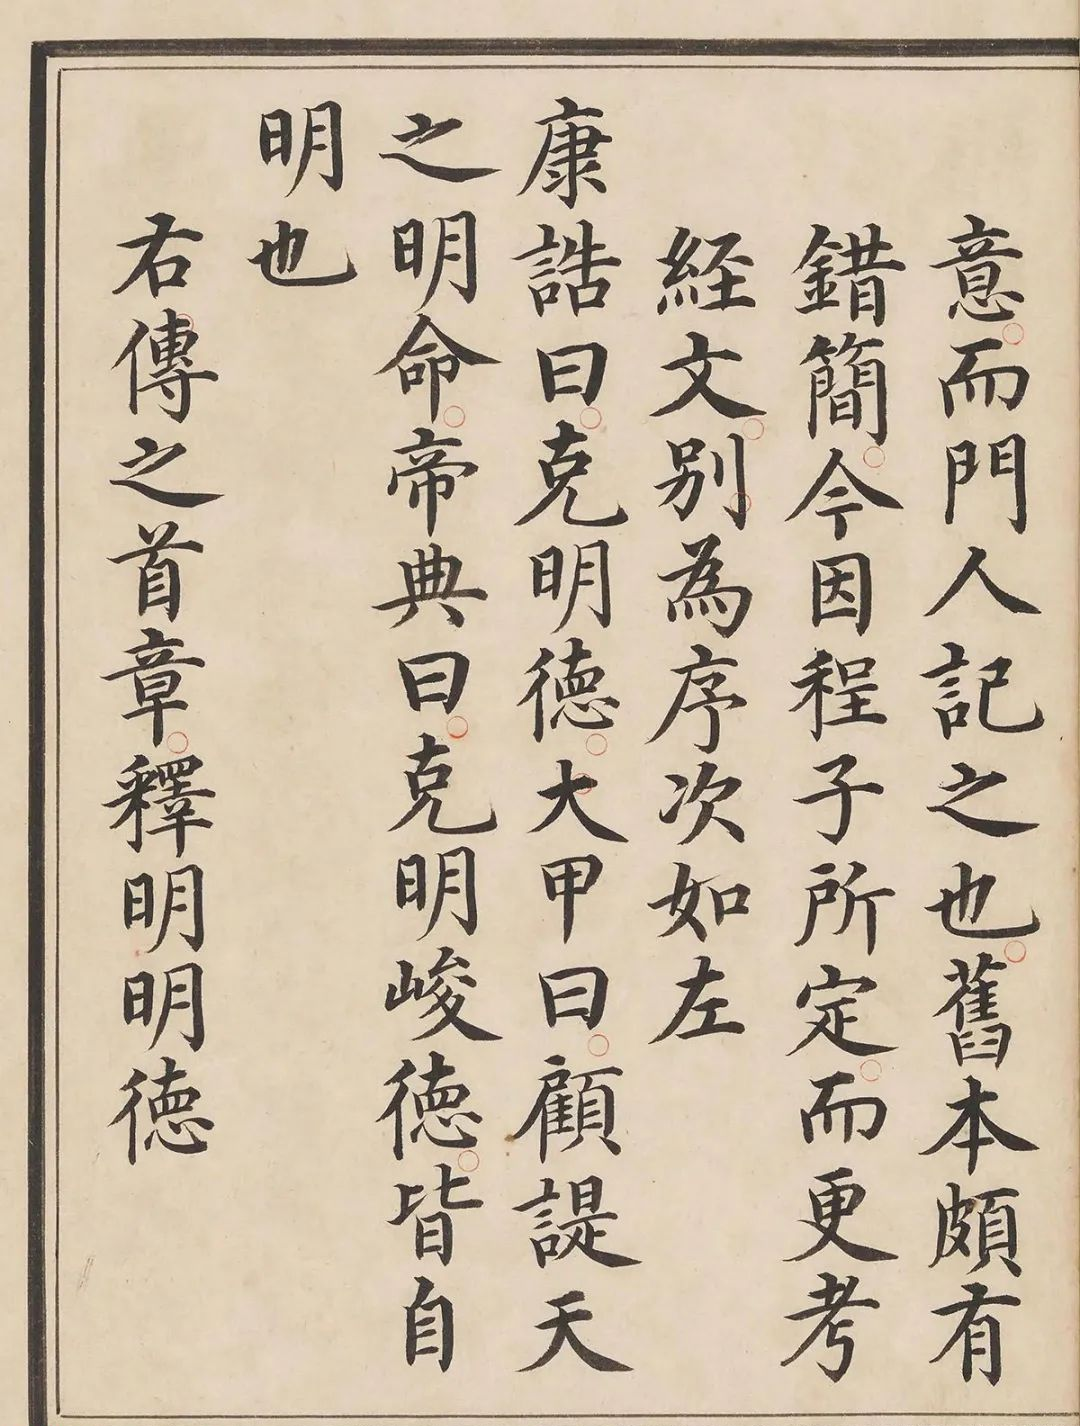 意而門人記之也舊本頗有
錯簡今因程子所定而更考
経文别為序次如左
康誥曰克明徳大甲曰顧諟天
之明命帝典曰克明峻徳皆自
明也
右傳之首章釋明明徳